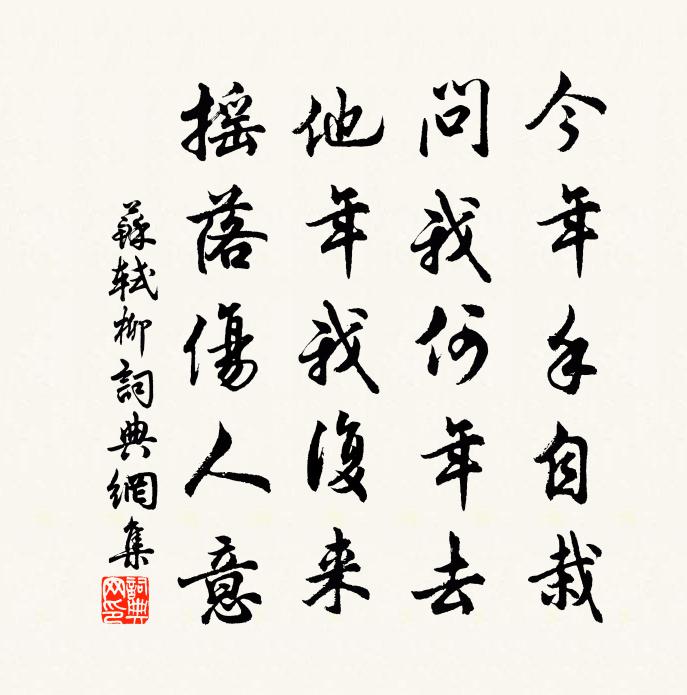 今年手自栽
問我何年去
他年我復来
揺落傷人意
蘇軾柳詞典網集
詞典網印